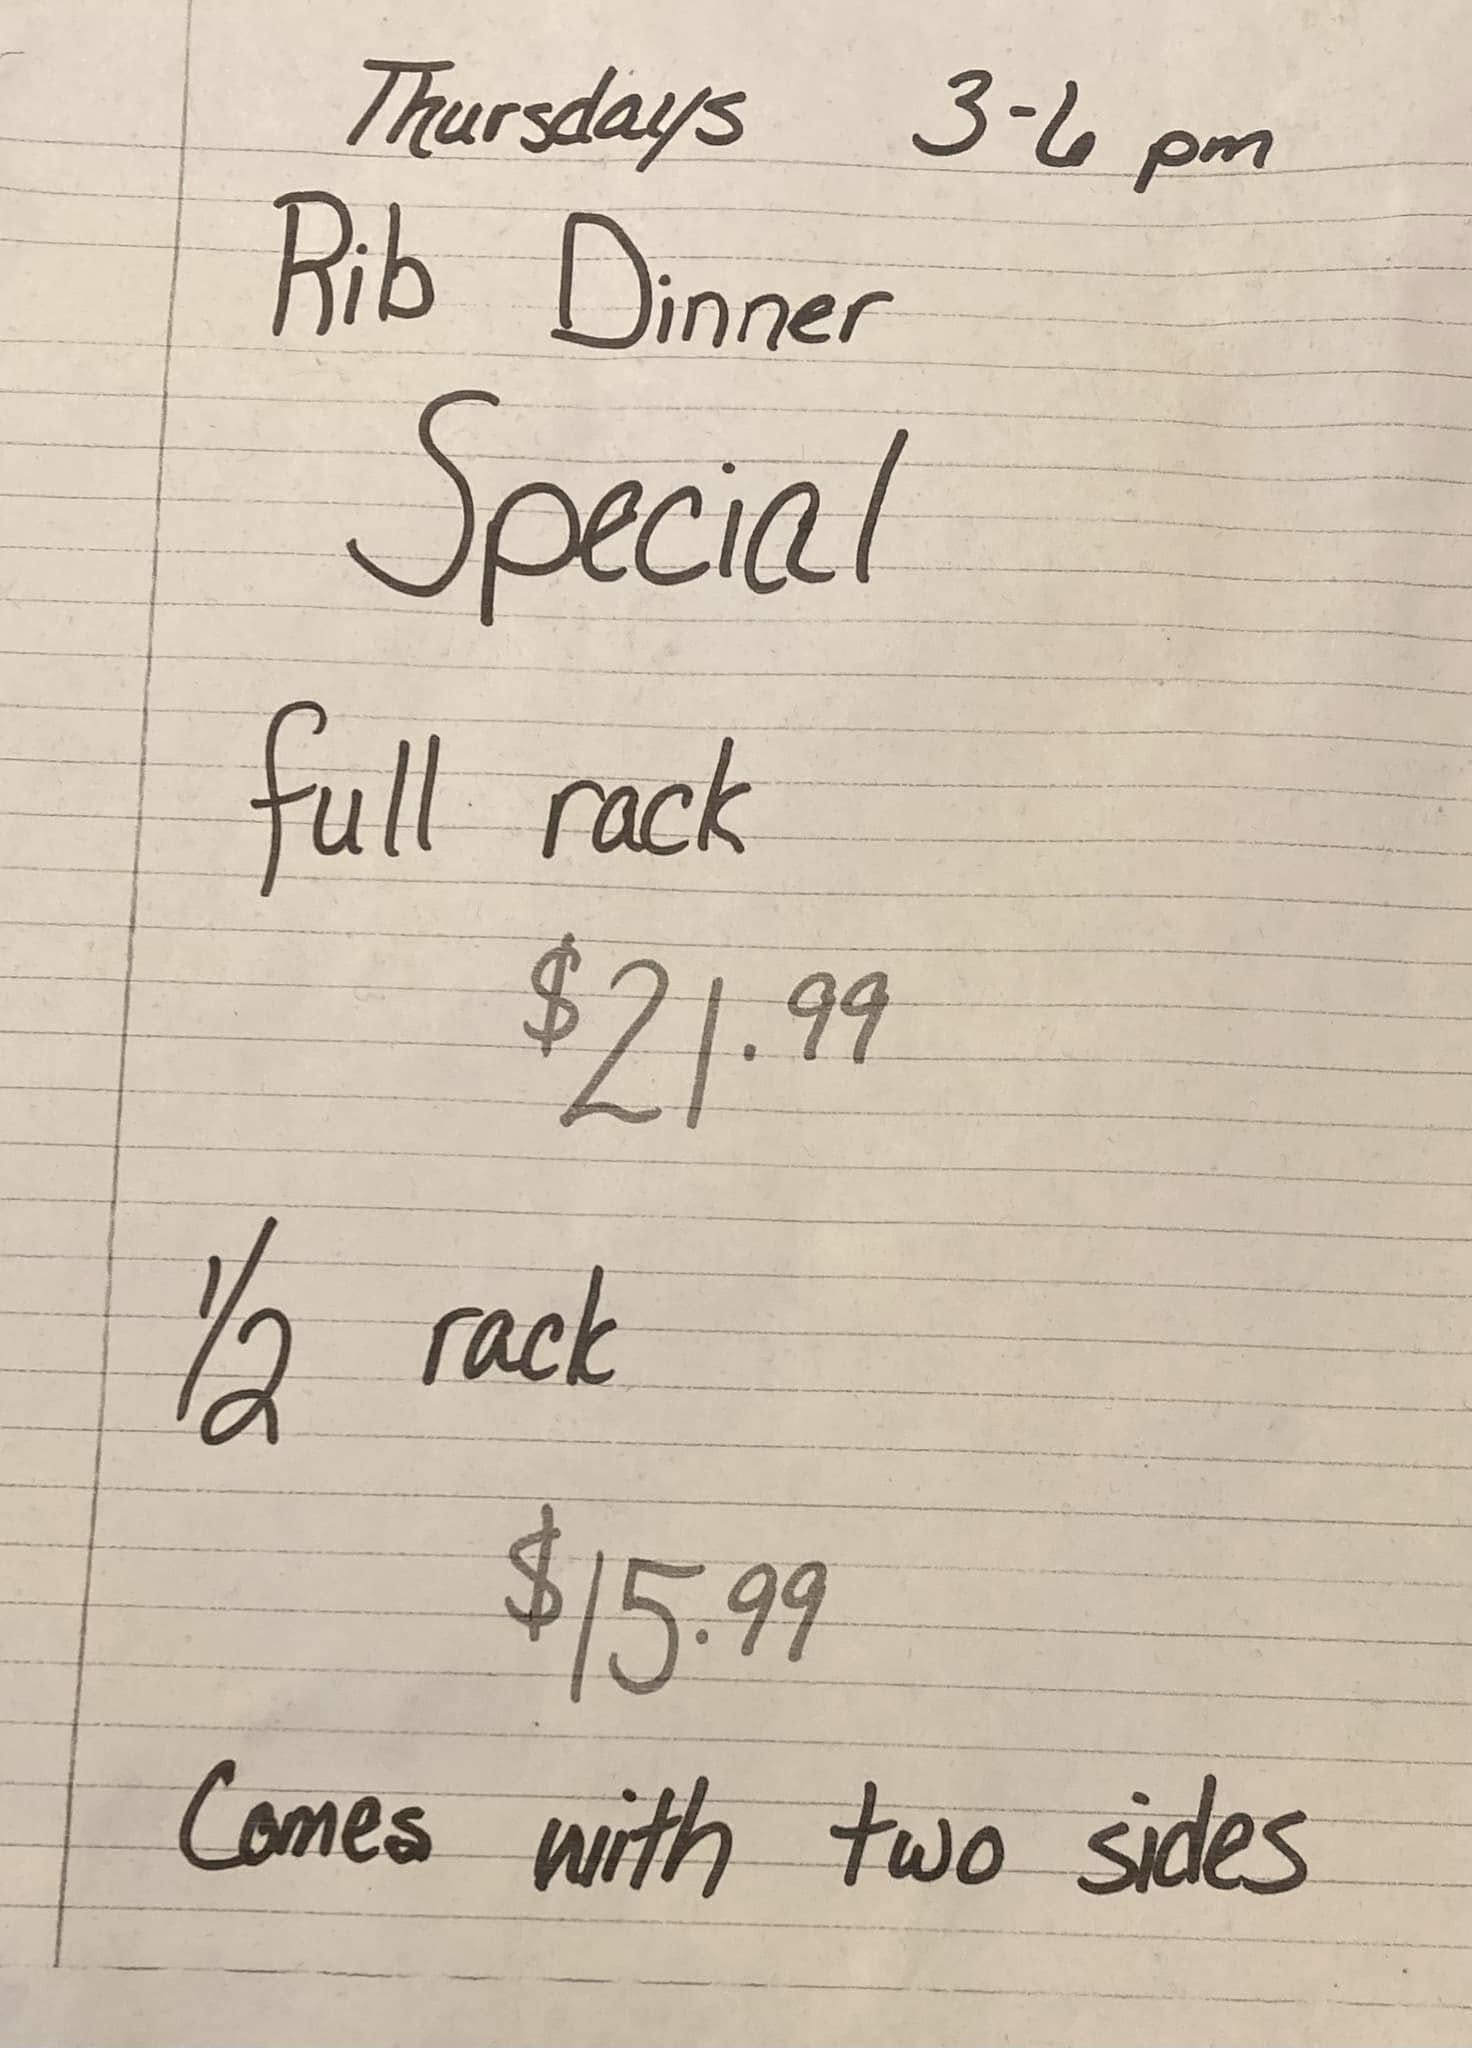 Thursdays 3-6 pm
Rib Dinner
Special
full rack
$21.99
1/2 rack
$15.99
Comes with two sides